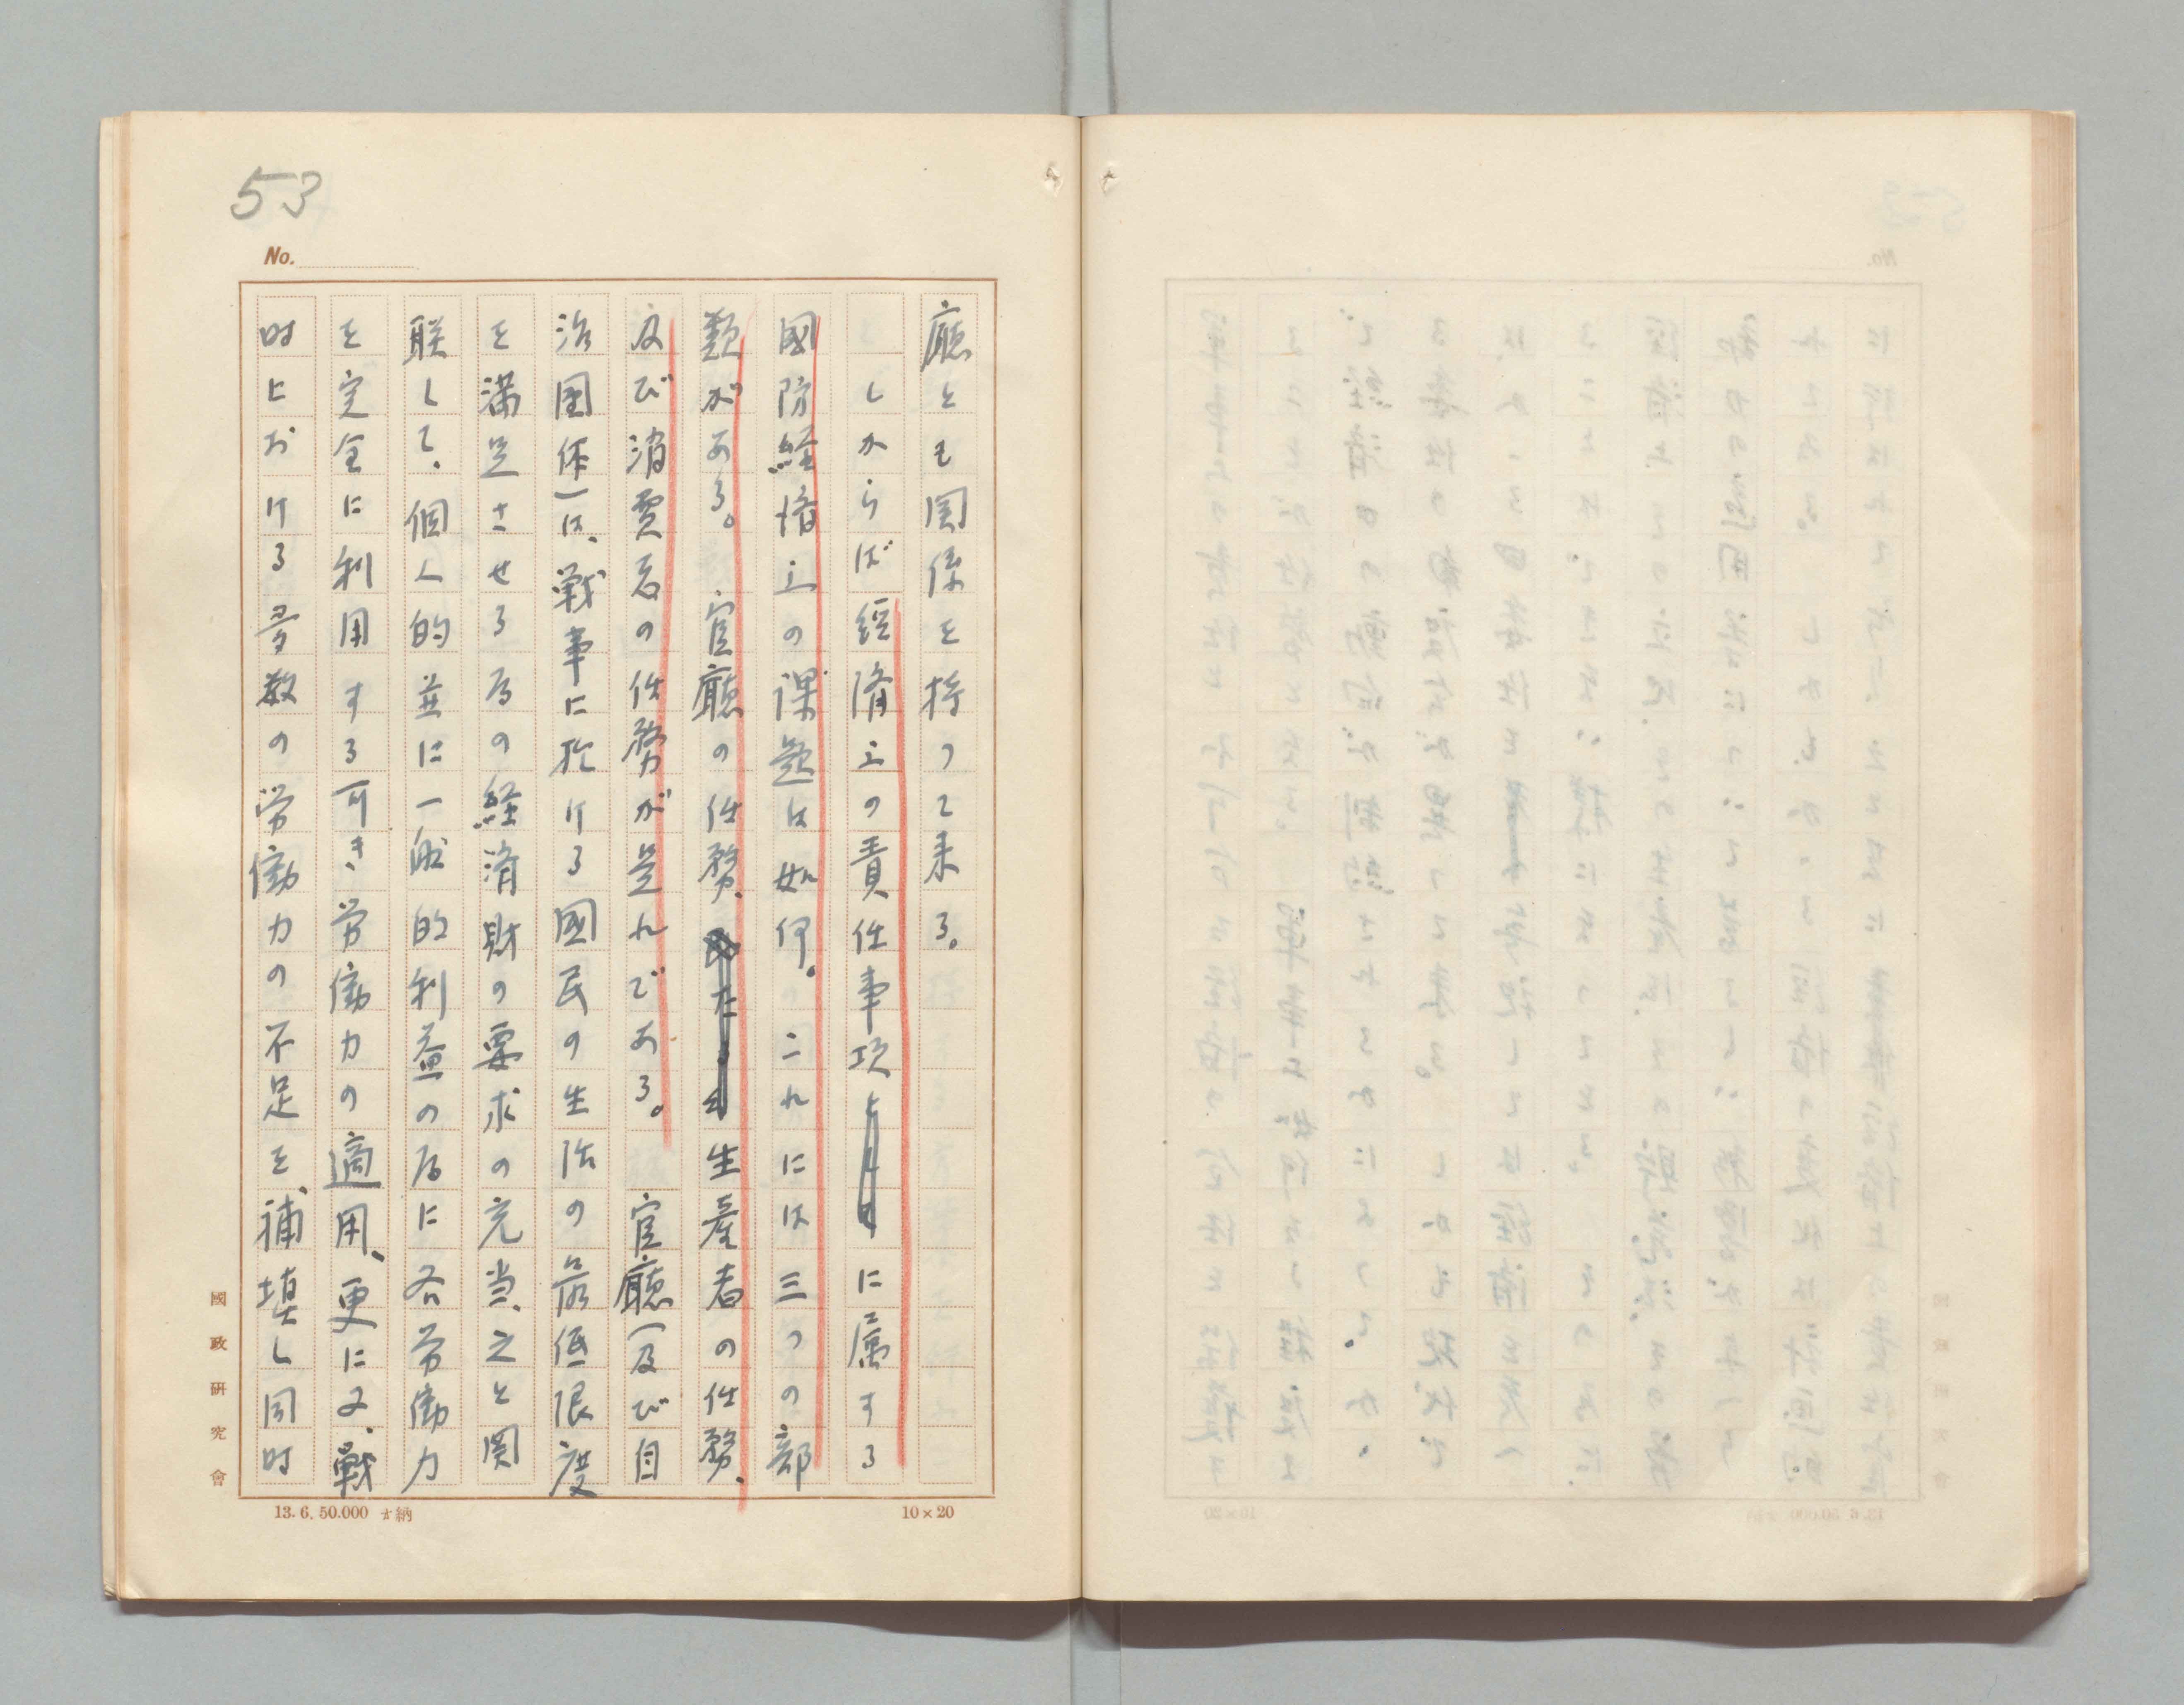 53
No.
廳とも関係を持って来る。
しからば経済上の責任事項に属する
國防経済上の課題は如何。これには三つの部
類がある。官廳の任務、生産者の任務、
及び消費者の任務が是れである。官廳(及び自
治団体)は、戦事に於ける國民の生活の最低限度
を満足させる為の経済財の要求の充当、之と関
联して、個人的並に一般的利益の為に各労働力
を完全に利用する可き労働力の適用、更に又、戦
时における多数の労働力の不足を、補填し同时
國政研究會
13.6.50.000 才納
10×20